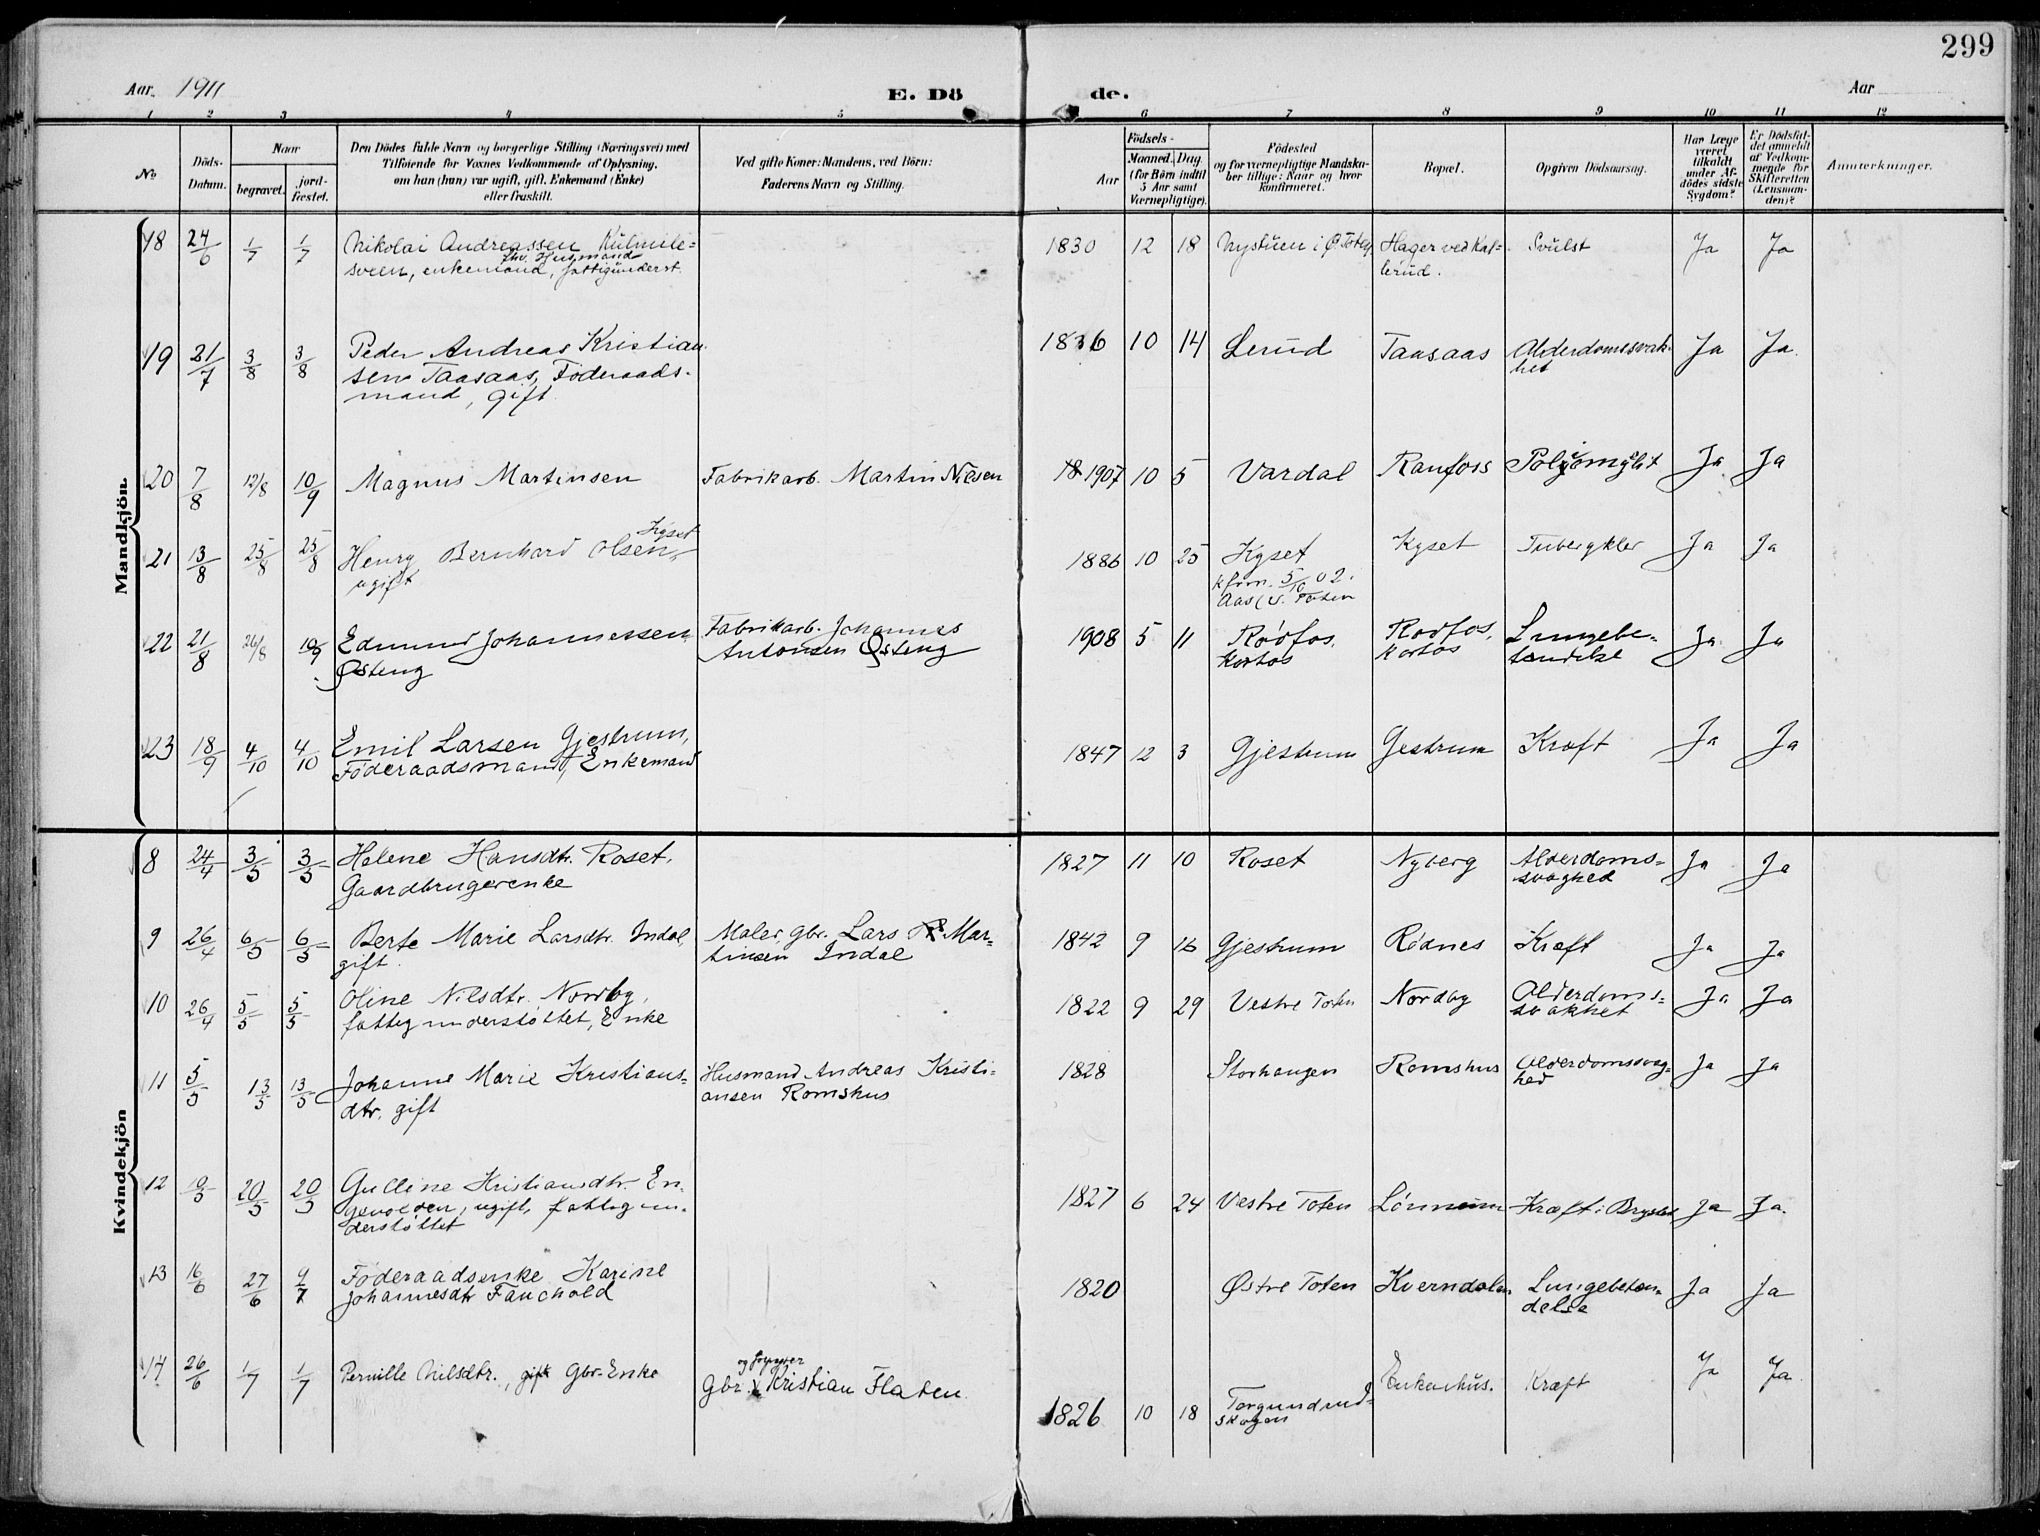 299
Aar. 1911
E. Dö
de.
Aar
1 2 3 4 5 6 7 8 9 10 11 12
No
Döds-
Datum.
Naar
begravet.
jord-
fæstet.
Den Dödes fulde Navn og borgerlige Stilling (Næringsvei) med
Tilföiende for Voxnes Vedkommende af Oplysning,
om han (hun) var ugift, gift, Enkemand (Enke)
eller fraskilt.
Ved gifte Koner: Mandens, ved Börn:
Faderens Navn og Stilling.
Födsels-
Aar
Maaned. Dag
(for Börn indtil
5 Aar samt
Værnepligtige).
Födested
og for værnepligtige Mandska-
ber tillige: Naar og hvor
konfirmeret.
Bopæl.
Opgiven Dödsaarsag.
Har Læge
været
tilkaldt
under Af-
dödes sidste
Sygdom?
Er Dödsfal-
det anmeldt
af Vedkom-
mende for
Skifteretten
(Lensman-
den)?
Anmerkninger.
Mandkjön
18 24/6 1/7 1/7 Nikolai Andreassen Kulmile=
fhv. Husmand
sveen, enkemand, fattigunderst.
1830 12 18 Nystuen i Ø. Toten Hager ved Kal=
lerud. Svulst Ja Ja
19 21/7 3/8 3/8 Peder Andreas Kristian
sen Taasaas, Föderaads-
mand, gift
1836 10 14 Lerud Taasaas Alderdomssvak-
het Ja Ja.
20 7/8 12/8 10/9 Magnus Martinsen Fabrikarb. Martin Nilsen
18 1907 10 5 Vardal Raufoss Ja Ja
21 13/8 25/8 25/8 Henry Bernhard Olsen Kyset
ugift
1886 10 25 Kyset
kfrm. 5/10 02.
Aas (V. Toten
Kyset Tubergkler Ja Ja
22 21/8 26/8 10/9 Edmund Johannessen
Østeng
Fabrikarb. Johannes
Antonsen Østeng
1908 5 11 Rödfos,
Kortos
Rödfos,
Kortos
Lungebe-
tændelse Ja Ja
23 18/9 4/10 4/10 Emil Larsen Gjestrum,
Föderaadsmand, Enkemand
1847 12 3 Gjestrum Gestrum Kræft Ja Ja
Kvindekjön
8 24/4 3/5 3/5 Helene Hansdtr. Roset,
Gaardbrugerenke
1827 11 10 Roset Nyberg Alderdoms=
svaghed Ja Ja
9 26/4 6/5 6/5 Berte Marie Larsdtr. Indal,
gift.
Maler, gbr. Lars Mar=
tinsen Indal
1842 9 16 Gjestrum Rödnes Kræft Ja Ja
10 26/4 5/5 5/5 Oline Nilsdtr. Nordby,
fattigunderstöttet, Enke
1822 9 29 Vestre Toten Nordby Alderdoms=
svakhet Ja Ja
11 5/5 13/5 13/5 Johanne Marie Kristians=
dtr. gift
Husmand Andreas Kristi=
ansen Romshus
1828 Storhaugen Romshus Alderdomssvag=
hed Ja Ja
12 20/5 20/5 Gulline Kristiansdtr. En-
gevolden, ugift, fattigun-
derstöttet
1827 6 24 Vestre Toten Lönneim Kræft i Brystet Ja Ja.
13 16/6 27/6 9/7 Föderaadsenke Karine
Johannesdtr Fauchald
1820 Østre Toten Kverndalen Lungebetæn=
delse Ja Ja
14 26/6 1/7 1/7 Pernille Nilsdtr., gift Gbr.-Enke
Gbr. Kristian Flaten.
1826 10 18 Torgundrud=
skogen
Enkerhus. Kræft Ja Ja